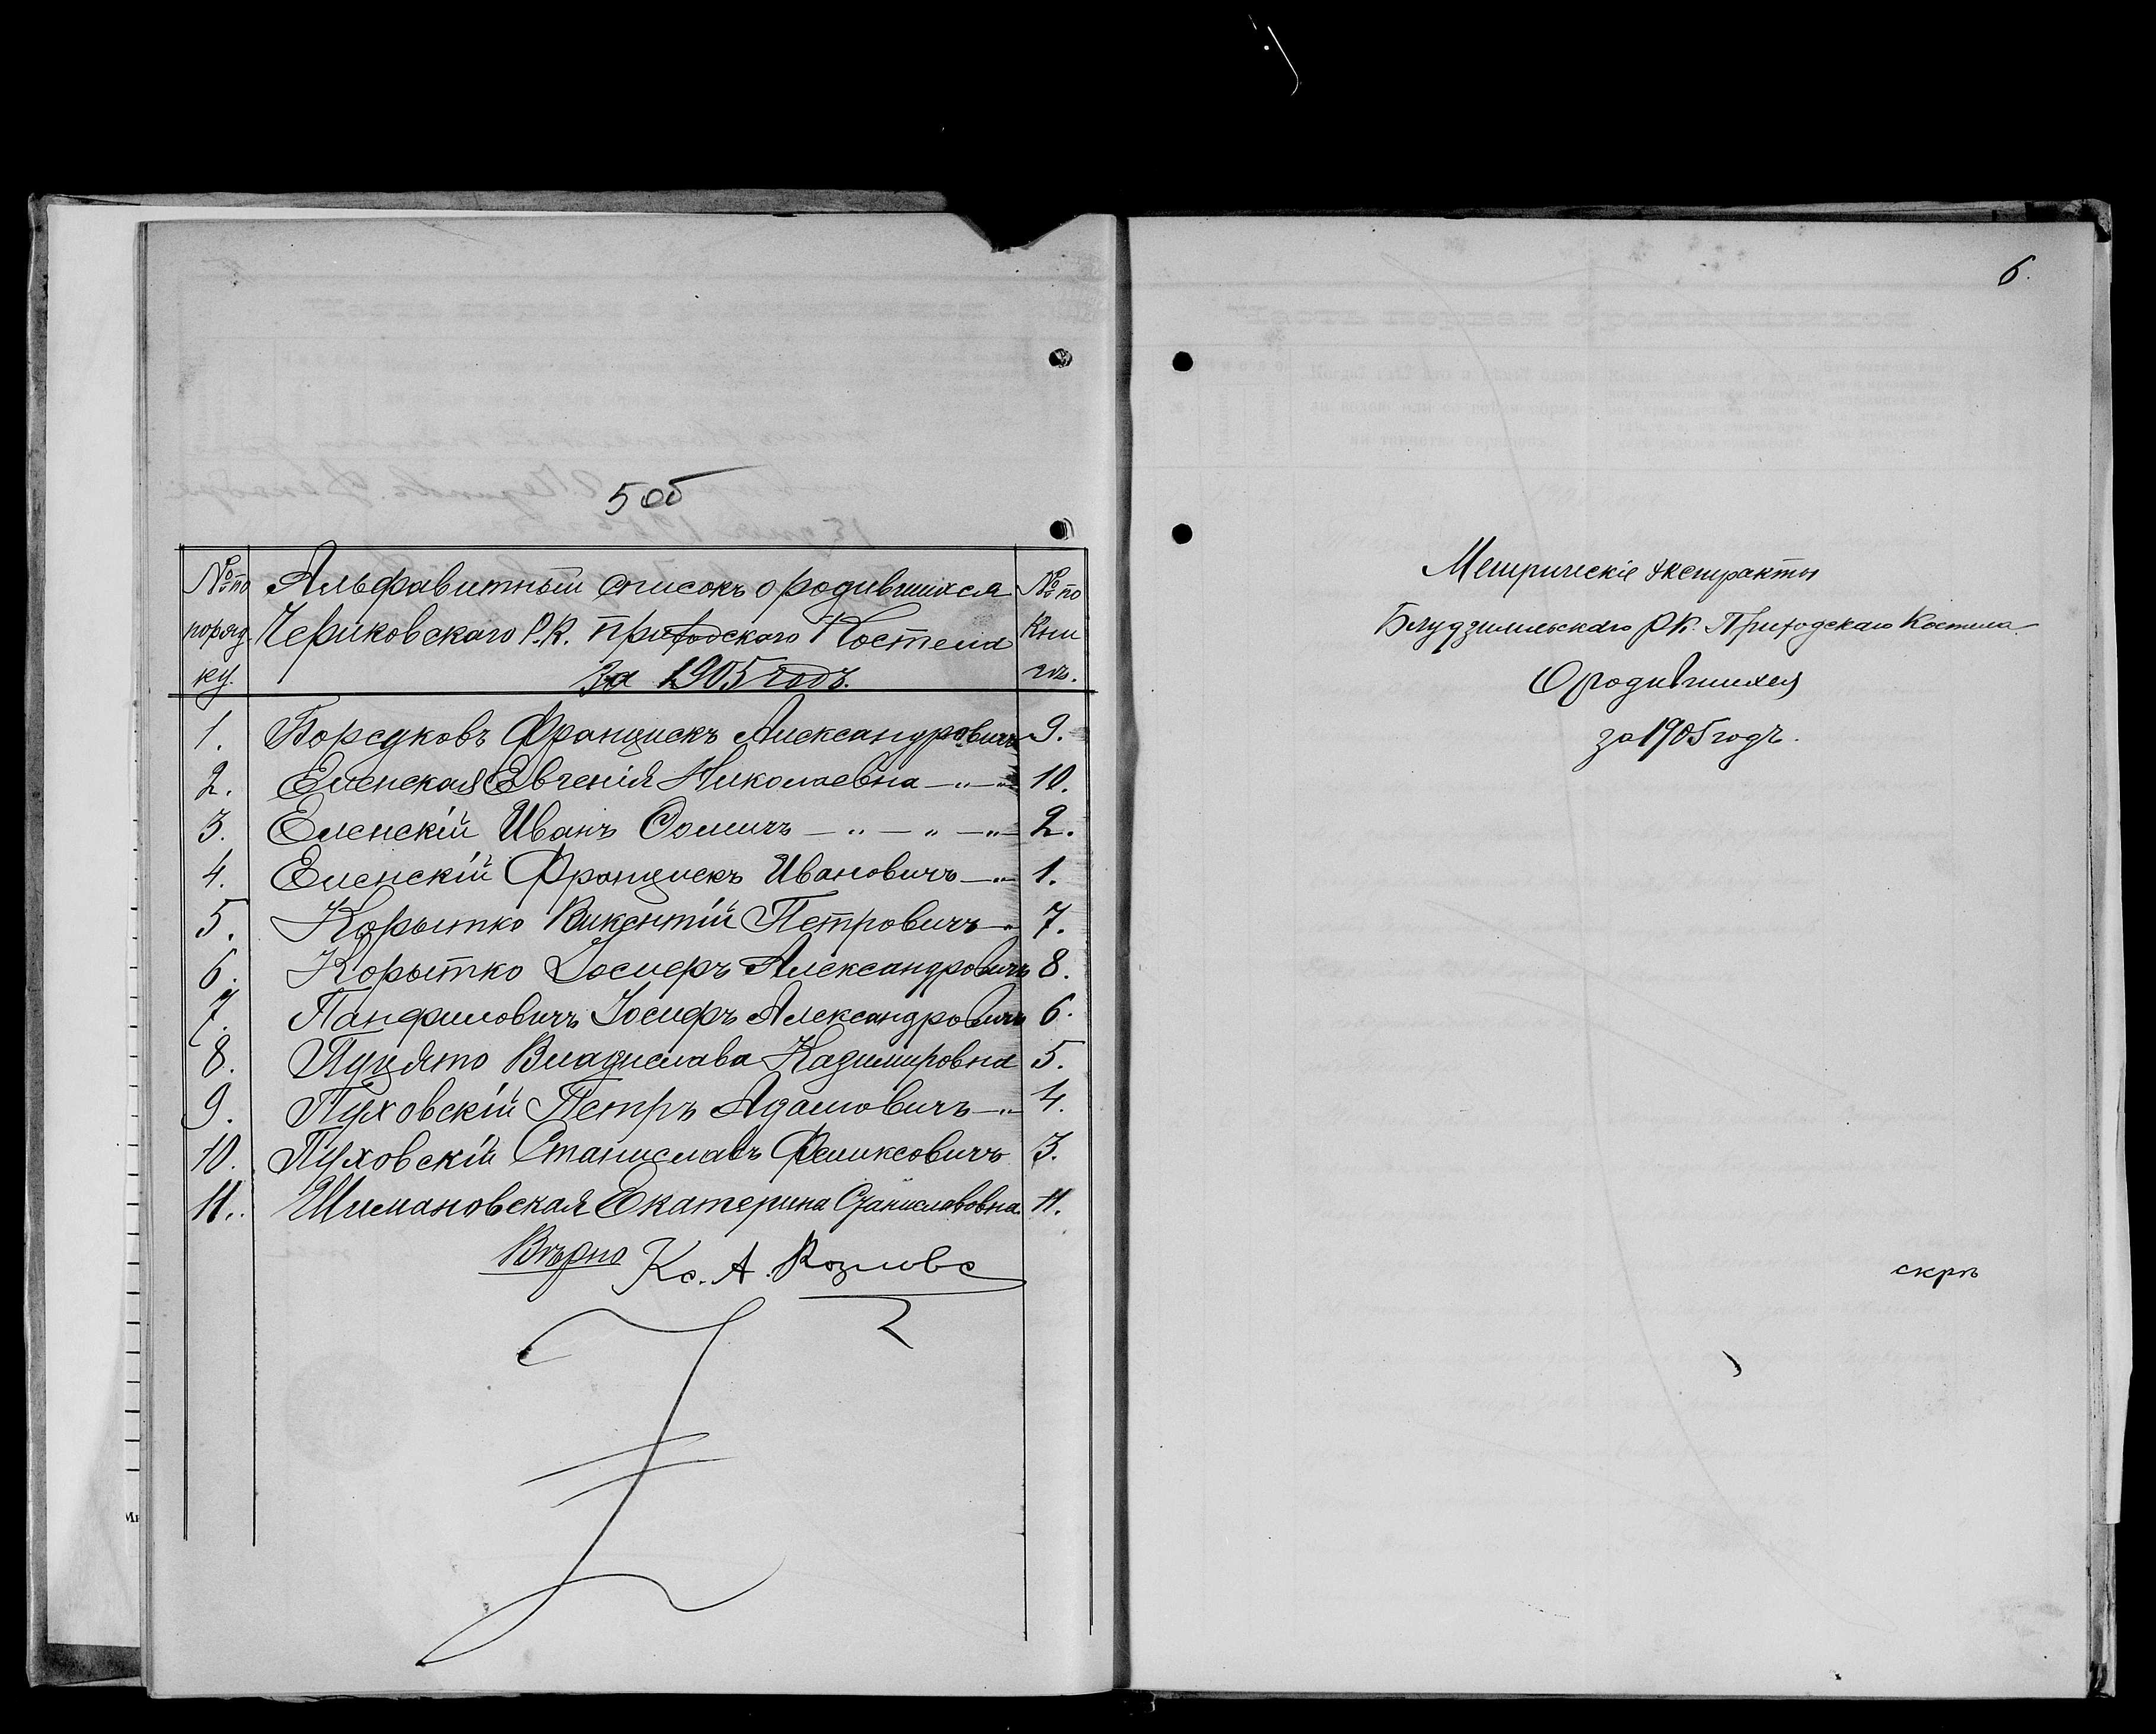 5 об
№ по Альфавитный списокъ о родившихся № по
поряд Чериковскаго Р.К. приходскаго Костела Кни
ку. за 1905 годъ. гѣ.
1. Борсуковъ Францискъ Александровичъ 9.
2. Еленская Евгенія Николаевна — " — " 10.
3. Еленскій Иванъ Фомичъ — " — " — " 2.
4. Еленскій Францискъ Ивановичъ — " 1.
5. Корытко Викентій Петровичъ — " 7.
6. Корытко Іосифъ Александровичъ 8.
7. Панфиловичъ Іосифъ Александровичъ 6.
8. Пуцято Владислава Казимировна 5.
9. Пуховскій Петръ Адамовичъ — " 4.
10. Пуховскій Станиславъ Феликсовичъ 3.
11. Шимановская Екатерина Станиславовна 11.
Вѣрно Кс. А.
6.
Метрическіе экстракты
Р.К. Приходскаго Костела
О родившихся
за 1905 годъ.
скрѣ